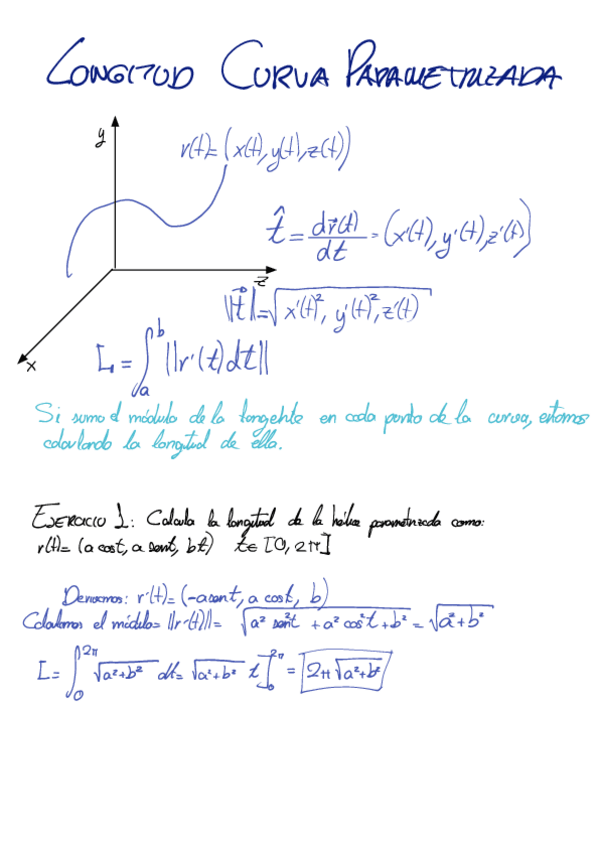 LONGITUD CURVA PARAMETRIZADA
y
r(t)= (x(t), y(t), z(t))
t̂ = dr⃗(t)/dt = (x'(t), y'(t), z'(t))
z
||t⃗||=√(x'(t)², y'(t)², z'(t))
x
L = ∫ₐᵇ ||r'(t)dt||
Si sumo el módulo de la tangente en cada punto de la curva, estamos
calculando la longitud de ella.
EJERCICIO 1: Calcula la longitud de la hélice parametrizada como:
r(t)= (a cost, a sent, bt) t∈ [0, 2π]
Derivamos: r'(t)= (-asent, a cost, b)
Calculamos el módulo= ||r'(t)||= √(a² sen²t + a² cos²t + b²) = √(a²+b²)
L= ∫₀²π √(a²+b²) dt= √(a²+b²) t]₀²π = 2π√(a²+b²)